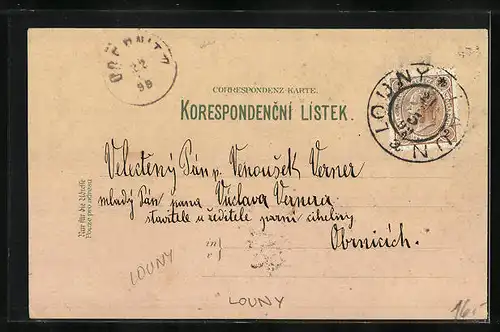 22
98
LOUNY
CORRESPONDENZ-KARTE.
KORESPONDENČNÍ LÍSTEK.
Veletěný Pán p. Venoušek Verner
mladý Pán pana Václava Vernera
stavitele u ředitele parní cihelny
Obrnicích.
in
v
Nur für die Adresse
Pouze pro adresu
LOUNY
LOUNY